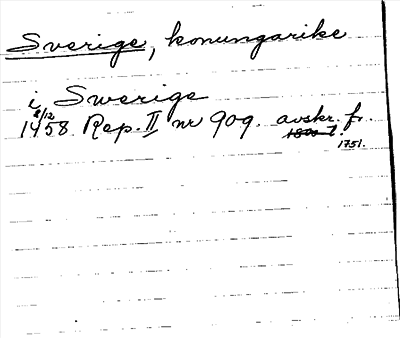 Sverige, konungarike
i Swerige
8/12
1458. Rep. II nr 909. avskr. fr.
1751.